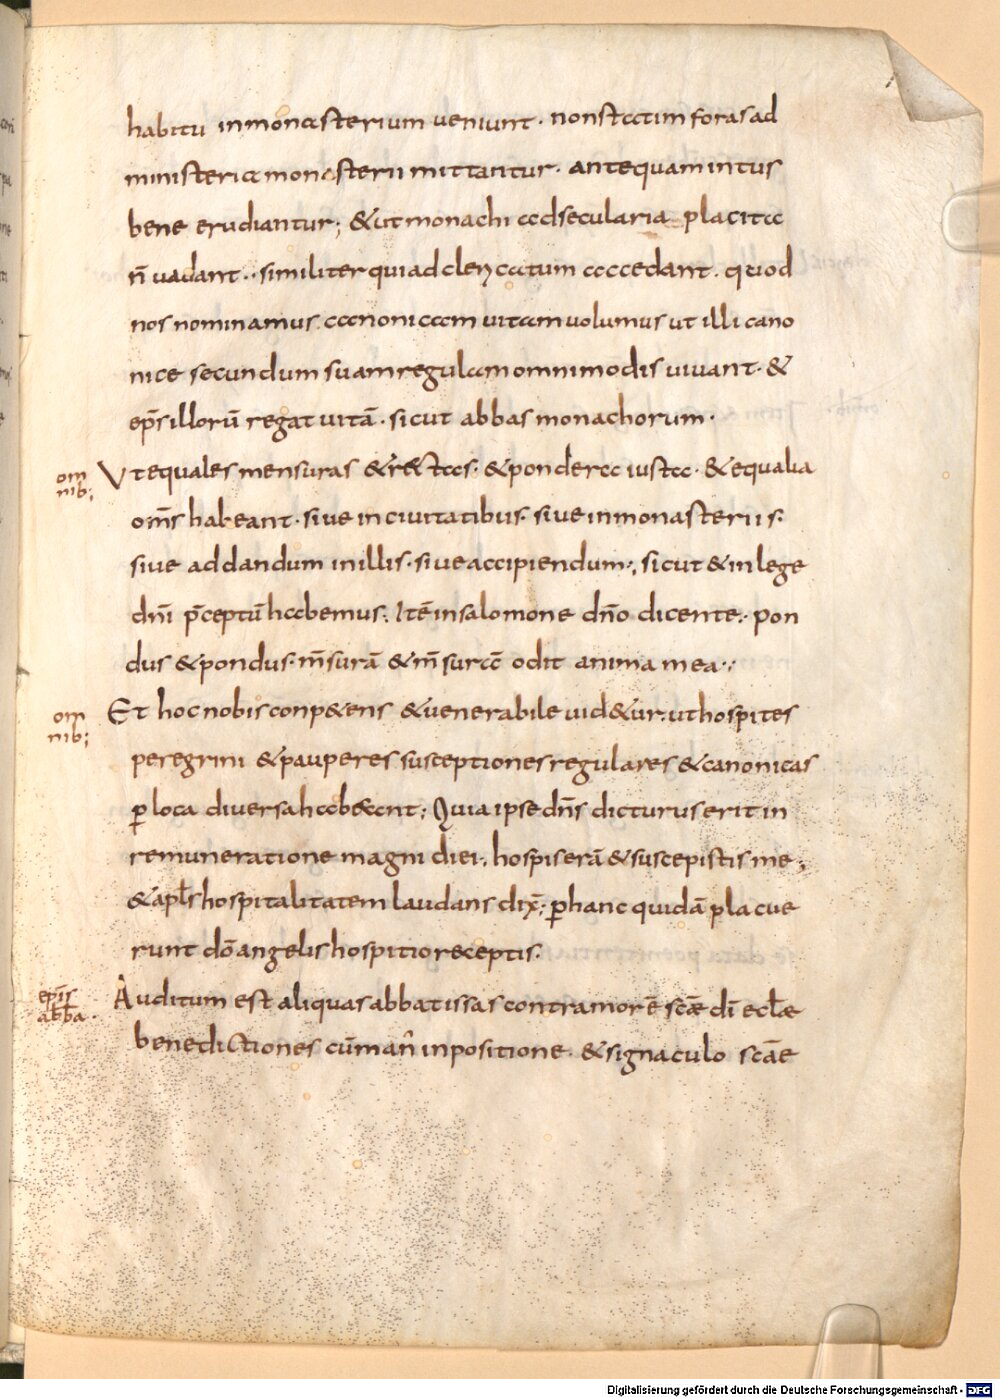 habitu inmonasterium ueniunt· nonstatim foras ad
ministeria monasterii mittantur· antequam intus
bene erudiantur; &ut monachi adsecularia placita
n̄ uadant·· similiter qui ad clericatum accedant· quod
nos nominamus canonicam uitam uolumus ut illi cano
nice secundum suam regulam omnimodis uiuant· &
ep̄s illorū regat uitā· sicut abbas monachorum·
om
nib;
Ut equales mensuras &rectas· &pondera iusta· &equalia
om̄s habeant· siue in ciuitatibus· siue inmonasteriis·
siue addandum in illis· siue accipiendum·, sicut &in lege
dn̄i p̄ceptū habemus· Itē insalomone dn̄o dicente·· pon
dus &pondus· m̄surā &m̄surā odit anima mea··,
om
nib;
Et hoc nobis conp&ens &uenerabile uid&ur· ut hospites
peregrini &pauperes susceptiones regulares &canonicas
ꝑ loca diuersa habeant; Quia ipse dn̄s dicturus erit in
remuneratione magni diei·, hospis erā &suscepistis me·,
&apl̄s hospitalitatem laudans dix̄; ꝑ hanc quidā placue
runt dō angelis hospitio receptis·
ep̄is
abba·
Auditum est aliquas abbatissas contra morē scǣ dī ecl̄æ
benedictiones cū man̄ inpositione· &signaculo scǣ
Digitalisierung gefördert durch die Deutsche Forschungsgemeinschaft - DFG